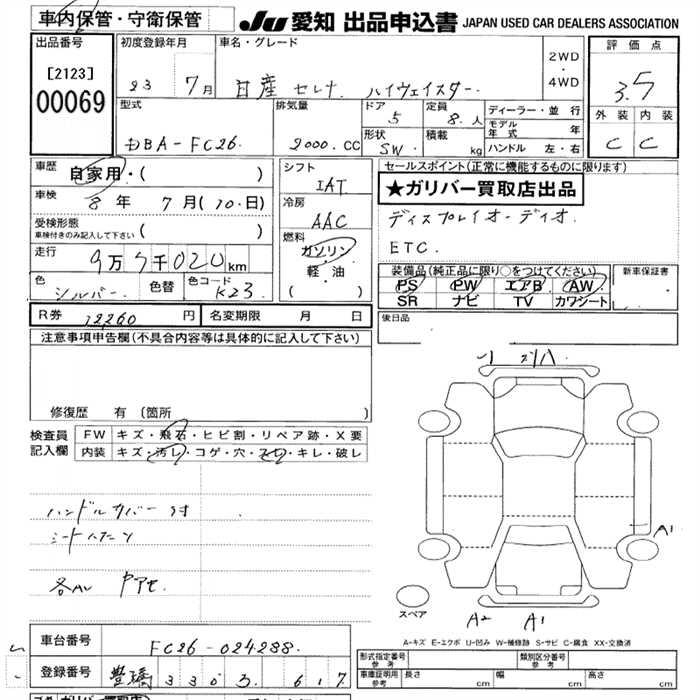 車内保管・守衛保管
JU 愛知 出品申込書 JAPAN USED CAR DEALERS ASSOCIATION
出品番号
[2123]
00069
初度登録年月
23 7月
車名・グレード
日産 セレナ ハイウェイスター
2WD
・
4WD
評価点
3.5
外装 内装
C C
型式
DBA-FC26
排気量
2000.CC
ドア
5
定員
8.人
形状
SW.
積載
kg
ディーラー・並行
モデル年式 年
ハンドル 左・右
車歴
自家用・( )
車検
8年 7月(10.日)
受検形態
車検付きのみ記入して下さい ( )
走行
9万5千020km
色
シルバー
色替
色コード
K23
シフト
IAT
冷房
AAC
燃料
ガソリン
・
軽・油
( )
セールスポイント(正常に機能するものに限ります)
★ガリバー買取店出品
ディスプレイオーディオ
ETC.
装備品(純正品に限り○をつけてください)
PS PW エアB AW
SR ナビ TV カワシート
新車保証書
R券 12260 円 名変期限 月 日
後日品
注意事項申告欄(不具合内容等は具体的に記入して下さい)
修復歴 有(箇所 )
検査員記入欄
FW キズ・飛石・ヒビ割・リペア跡・X要
内装 キズ・汚レ・コゲ・穴・スレ・キレ・破レ
ハンドルカバー付
A1
スペア
A2 A1
A-キズ E-エクボ U-凹み W-補修跡 S-サビ C-腐食 XX-交換済
車台番号 FC26-024288.
登録番号 豊橋 330 617
形式指定番号 参考
類別区分番号 参考
車庫証明用参考 長さ cm 幅 cm 高さ cm